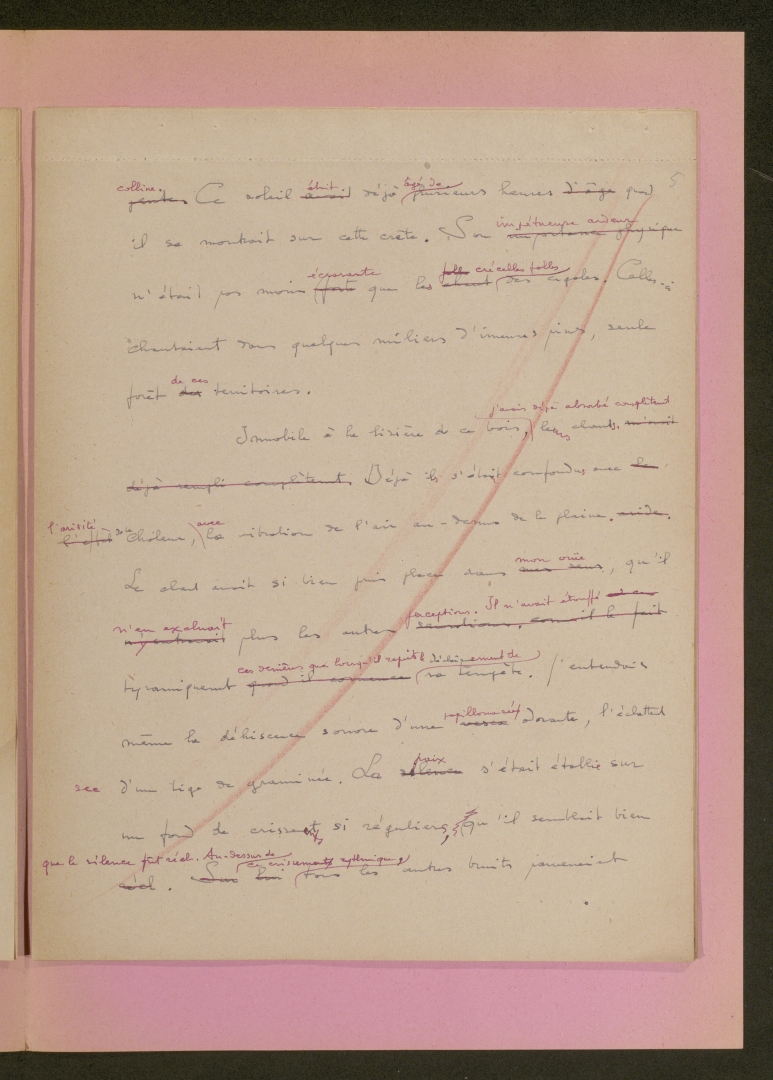 5
colline. était âgé de
gentes Ce soleil avait déjà plusieurs heures d'âge quand
impétueuse ardeur
il se montrait sur cette crête. Son importance physique
écrasante folle crécelles folles
n'était pas moins forte que les chant des cigales. Celles-ci
chantaient dans quelques milliers d'immenses pins, seule
de ces
forêt des territoires.
j'avais déjà absorbé complètement
Immobile à la lisière de ce bois, leurs chants. m'avait
déjà rempli complètement. Déjà ils s'était confondus avec le
l'aridité de la avec
chaleur, la vibration de l'air au-dessus de la plaine. aride.
mon ouïe
Le chant avait si bien pris place dans mes sens, qu'il
n'en excluait perceptions. Il n'avait étouffé
plus les autres sensations, comme il le fait
ces dernières que lorsqu'il reprit le déchaînement de
tyranniquement quand il commence sa tempête. J'entendais
papillonacée
même la déhiscence sonore d'une vesce odorante, l'éclatement
paix
sec d'une tige de graminée. La silence s'était établie sur
un fond de crissements si réguliers, qu'il semblait bien
que le silence fût réel. Au-dessus de ce crissement rythmique
réel. Sur lui tous les autres bruits prenaient